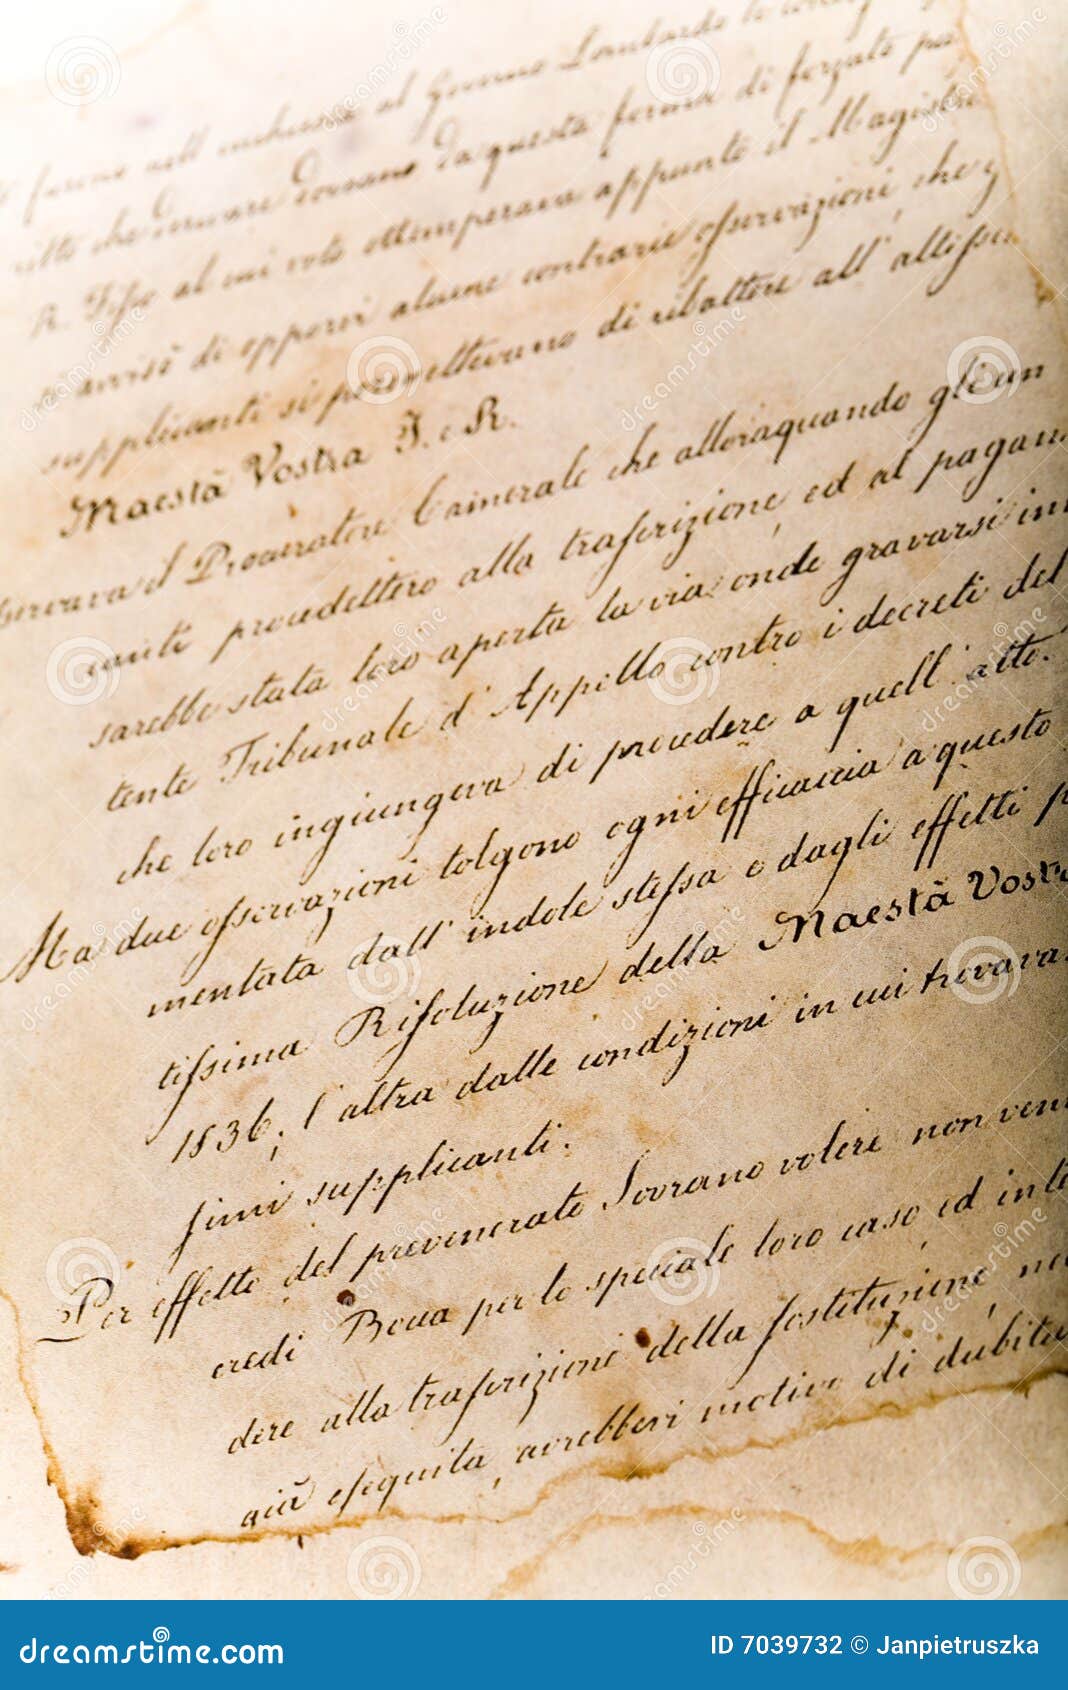 furono nell' al Governo Lombardo le
che dovevano da questa forma di forzato
R. Fisco al cui voto ottemperava appunto il Magistra
avvisò di opporvi alcune contrarie osservazioni, che
supplicanti si permettevano di ribattere all' altissi
Maestà Vostra I. e R.
servava il Procuratore Camerale che alloraquando gli an
canti procedettero alla trascrizione, ed al pagam
sarebbe stata loro aperta la via onde gravarsi in
tente Tribunale d'Appello contro i decreti del
che loro ingiungeva di procedere a quell' atto.
Ma due osservazioni tolgono ogni efficaccia a questo
mentata dall' indole stessa e dagli effetti p
tissima Risoluzione della Maestà Vostr
1836; l'altra dalle condizioni in cui trovava
simi supplicanti.
Per effetto del prevenerato Sovrano volere non ven
credi Bocca per lo speciale loro caso, ed in
dere alla trascrizione della sostituzione, ne
già eseguita, avrebbevi motivo di dubita
dreamstime.com
ID 7039732 © Janpietruszka